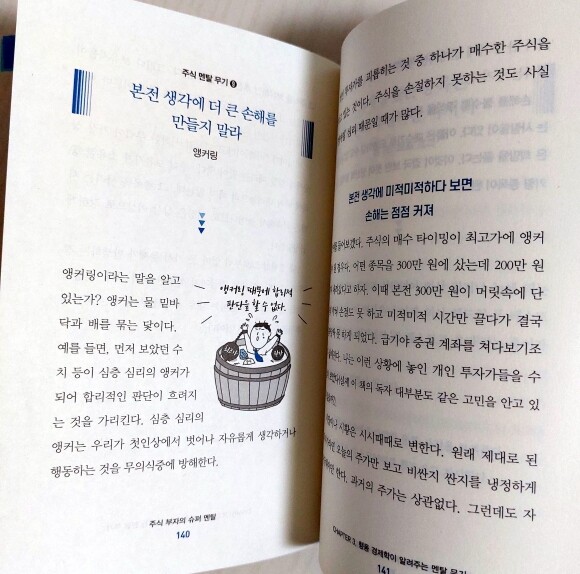 주식 멘탈 무기 8
본전 생각에 더 큰 손해를
만들지 말라
앵커링
앵커링이라는 말을 알고
있는가? 앵커는 물 밑바
닥과 배를 묶는 닻이다.
예를 들면, 먼저 보았던 수
치 등이 심층 심리의 앵커가
되어 합리적인 판단이 흐려지
는 것을 가리킨다. 심층 심리의
앵커는 우리가 첫인상에서 벗어나 자유롭게 생각하거나
행동하는 것을 무의식중에 방해한다.
앵커링 때문에 합리적
판단을 할 수 없다.
주식 부자의 슈퍼 멘탈
140
괴롭히는 것 중 하나가 매수한 주식을
것이다. 주식을 손절하지 못하는 것도 사실
심리 때문일 때가 많다.
본전 생각에 미적미적하다 보면
손해는 점점 커져
들어보겠다. 주식의 매수 타이밍이 최고가에 앵커
경우다. 어떤 종목을 300만 원에 샀는데 200만 원
하자. 이때 300만 원이 머릿속에 단
손절도 못 하고 미적미적 시간만 끌다가 결국
하게 되었다. 급기야 증권 계좌를 쳐다보기조
나는 이런 상황에 놓인 개인 투자가들을 수
이 책의 독자 대부분도 같은 고민을 안고 있
시황은 시시때때로 변한다. 원래 제대로 된
오늘의 주가만 보고 비싼지 싼지를 냉정하게
한다. 과거의 주가는 상관없다. 그런데도 자
CHAPTER 3. 행동 경제학이 알려주는 멘탈 무기
141